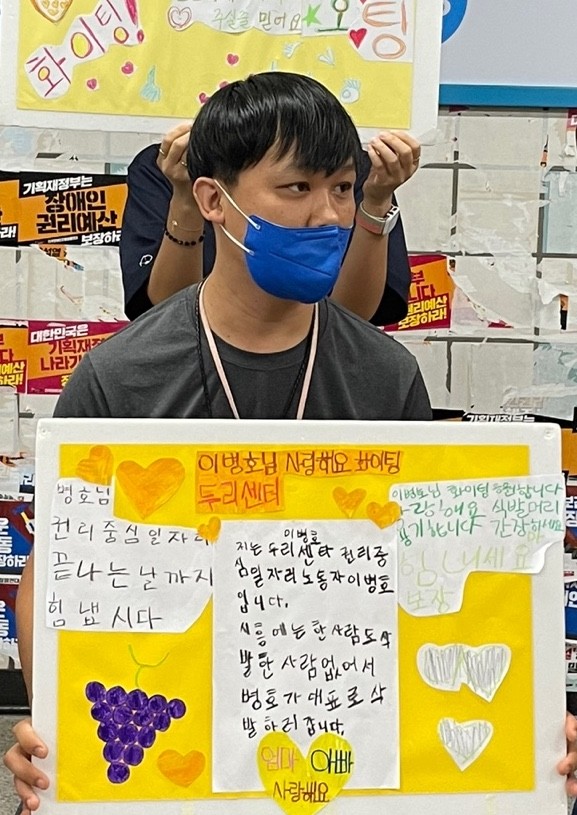 화이팅!
투쟁을 믿어요
팅
기획재정부는
장애인
권리예산
보장하라!
권리예산
보장하라!
대한민국은
기획재정부
이병호님 사랑해요 화이팅
두리센터
병호님
권리중심일자리
끝나는날까지
힘냅시다
이병호님 화이팅 응원합니다
사랑해요 삭발머리
긴장하세요
힘내세요
보장
이병호
저는 두리센터 권리중
심일자리 노동자 이병호
입니다.
시흥에는 한사람도 삭
발한 사람 없어서
병호가 대표로 삭
발하러 갑니다.
엄마 아빠
사랑해요